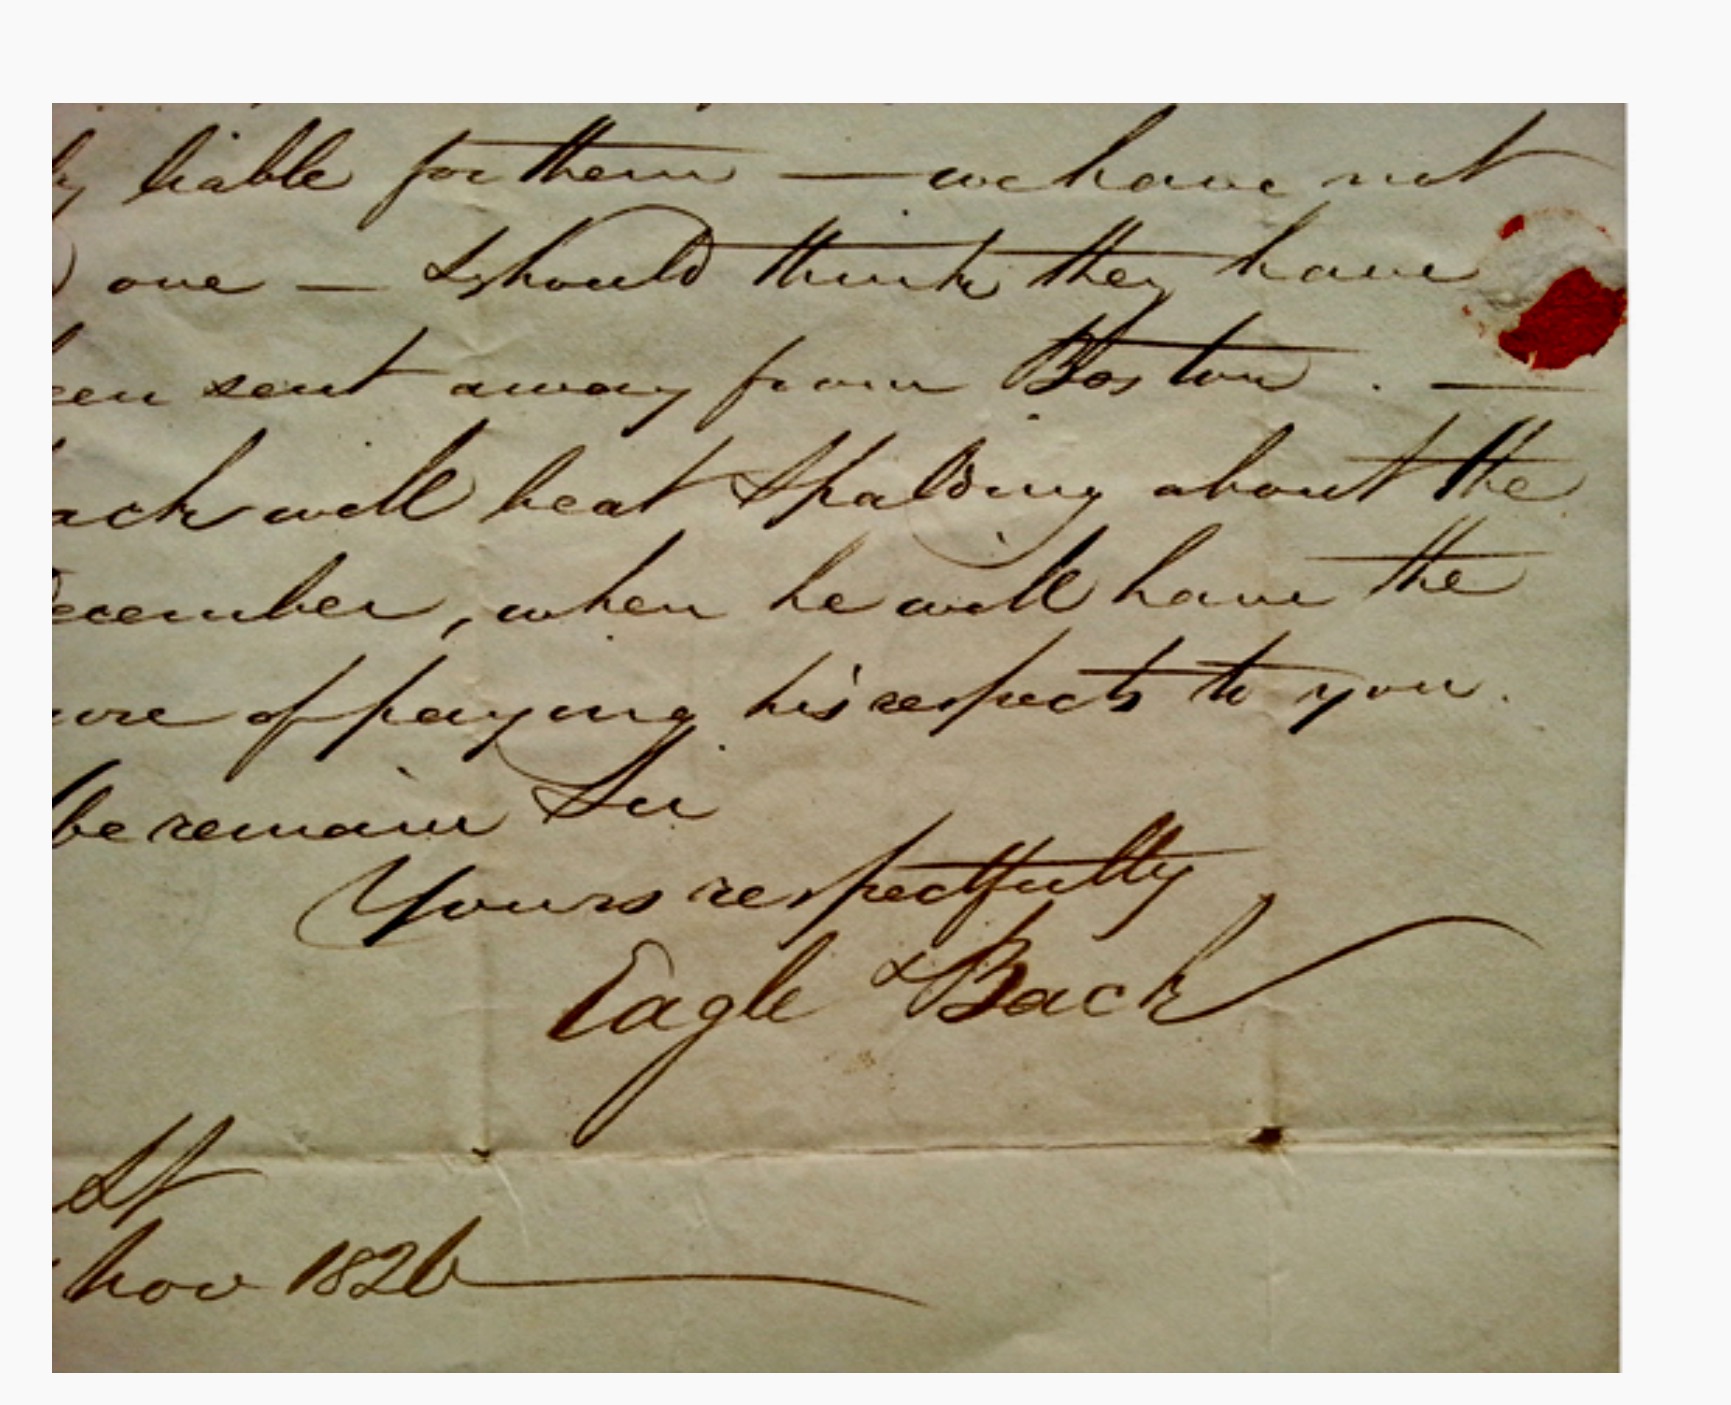 ly liable for them — we have not
one — I should think they have
een sent away from Boston . —
ack will be at Spalding about the
December, when he will have the
ure of paying his respects to you.
be remain Sir
Yours respectfully
Eagle & Back
St
Nov 1826